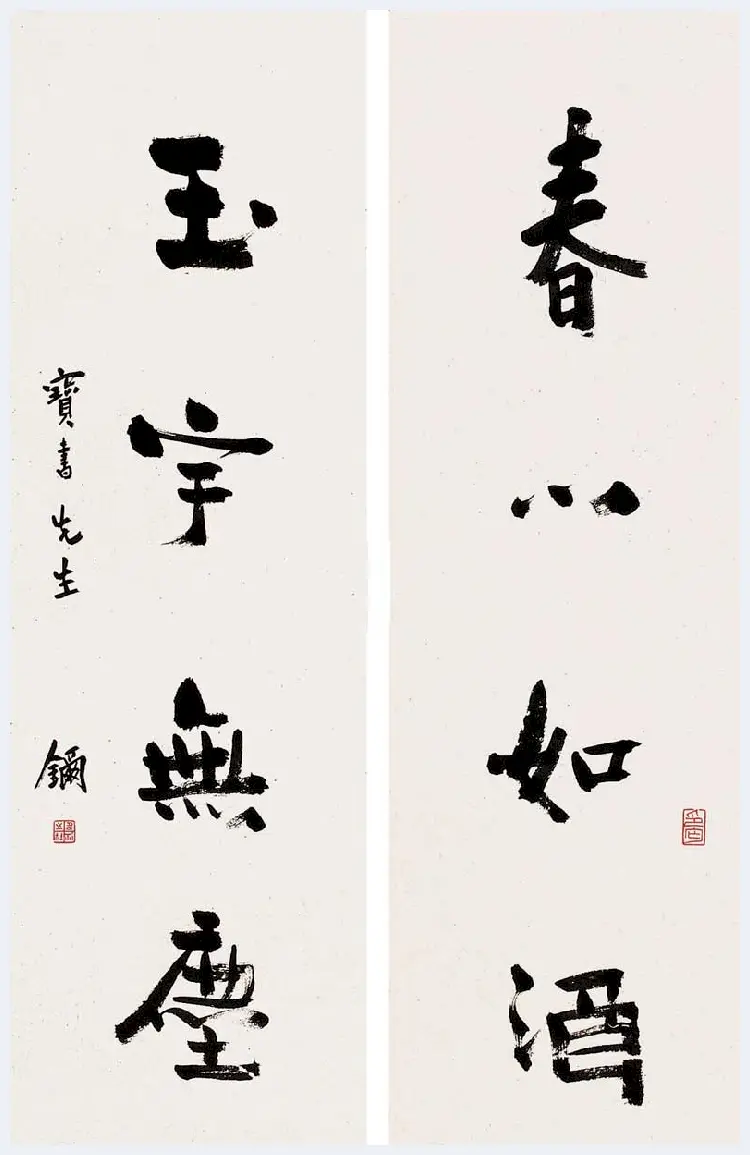 春心如酒
玉宇無塵
寶書先生